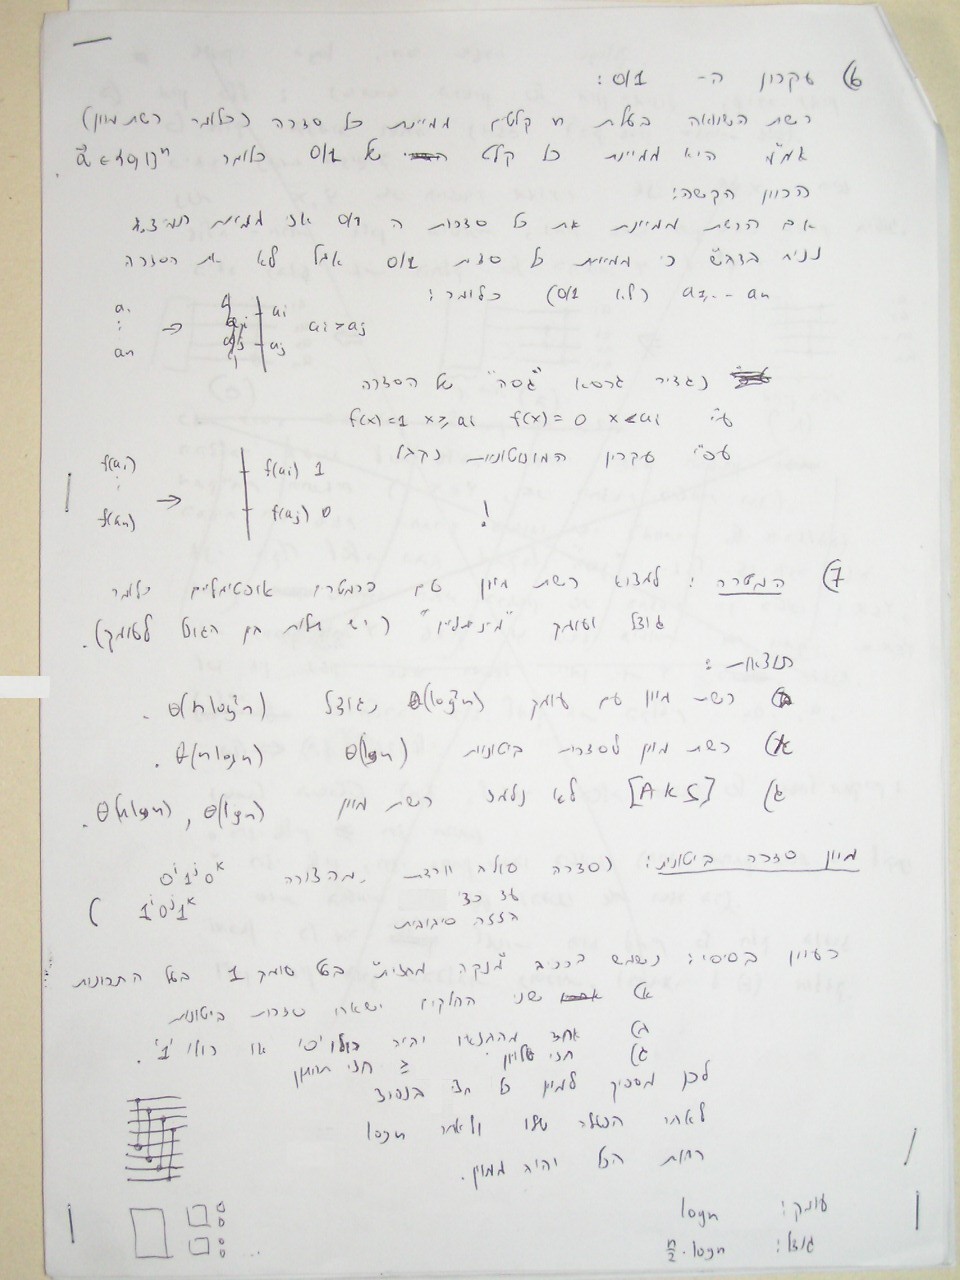 6) עקרון ה- 0/1 :
רשת השוואה בעלת n קלטים ממיינת כל סדרה (כלומר רשת מיון)
אמ"מ היא ממיינת כל קלט של 0/1 כלומר a ∈ {0,1}ⁿ
הכוון הקשה:
אם הרשת ממיינת את כל סדרות ה 0/1 אזי ממיינת
נניח בדרך כי ממיינת כל סדרת 0/1 אבל לא את הסדרה
a1,... an (לא 0/1) כלומר:
a1 : an ⇒ ai aj ai > aj
נגדיר גרסא "גסה" של הסדרה
ע"י f(x)=0 x<ai f(x)=1 x≥ai
עפ"י עקרון המונוטוניות נקבל
f(a1) : f(an) ⇒ f(ai) 1 f(aj) 0 !
7) המטרה: למצוא רשת מיון עם פרמטרים אופטימליים כלומר
גודל ועומק "מינימליין" (יש תלות בין הגודל לעומק).
תוצאות:
רשת מיון עם עומק θ(log²n) וגודל θ(n log²n).
רשת מיון לסדרות ביטוניות θ(logn) θ(n logn).
ג) [AKS] לא נלמד רשת מיון θ(logn), θ(n logn).
מיון סדרה ביטונית: (סדרה עולה יורדת מהצורה 0ⁱ1ʲ0ᵏ
עד כדי הזזה סיבובית 1ⁱ0ʲ1ᵏ)
רעיון בסיסי: נשתמש ברכיב "מנקה מחצית" בעל עומק 1 בעל התכונות
א) שני החלקים ישארו סדרות ביטוניות
ב) אחד מהחצאים יהיה כולו '0' או כולו '1'.
ג) חצי עליון ≤ חצי תחתון
לכן מספיק למיין כל חצי בנפרד
לאחר הפעלה שלו ולאחר logn
רמות הכל יהיה ממוין.
עומק: logn
גודל: n/2 · logn